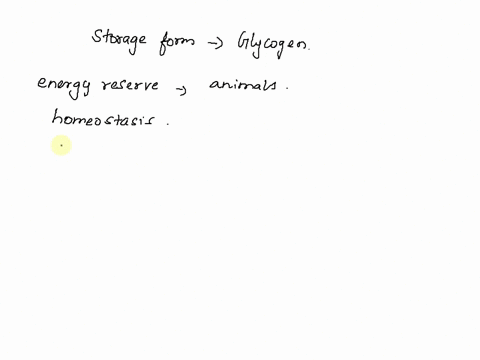 Storage form → Glycogen.
energy reserve → animals.
homeostasis.